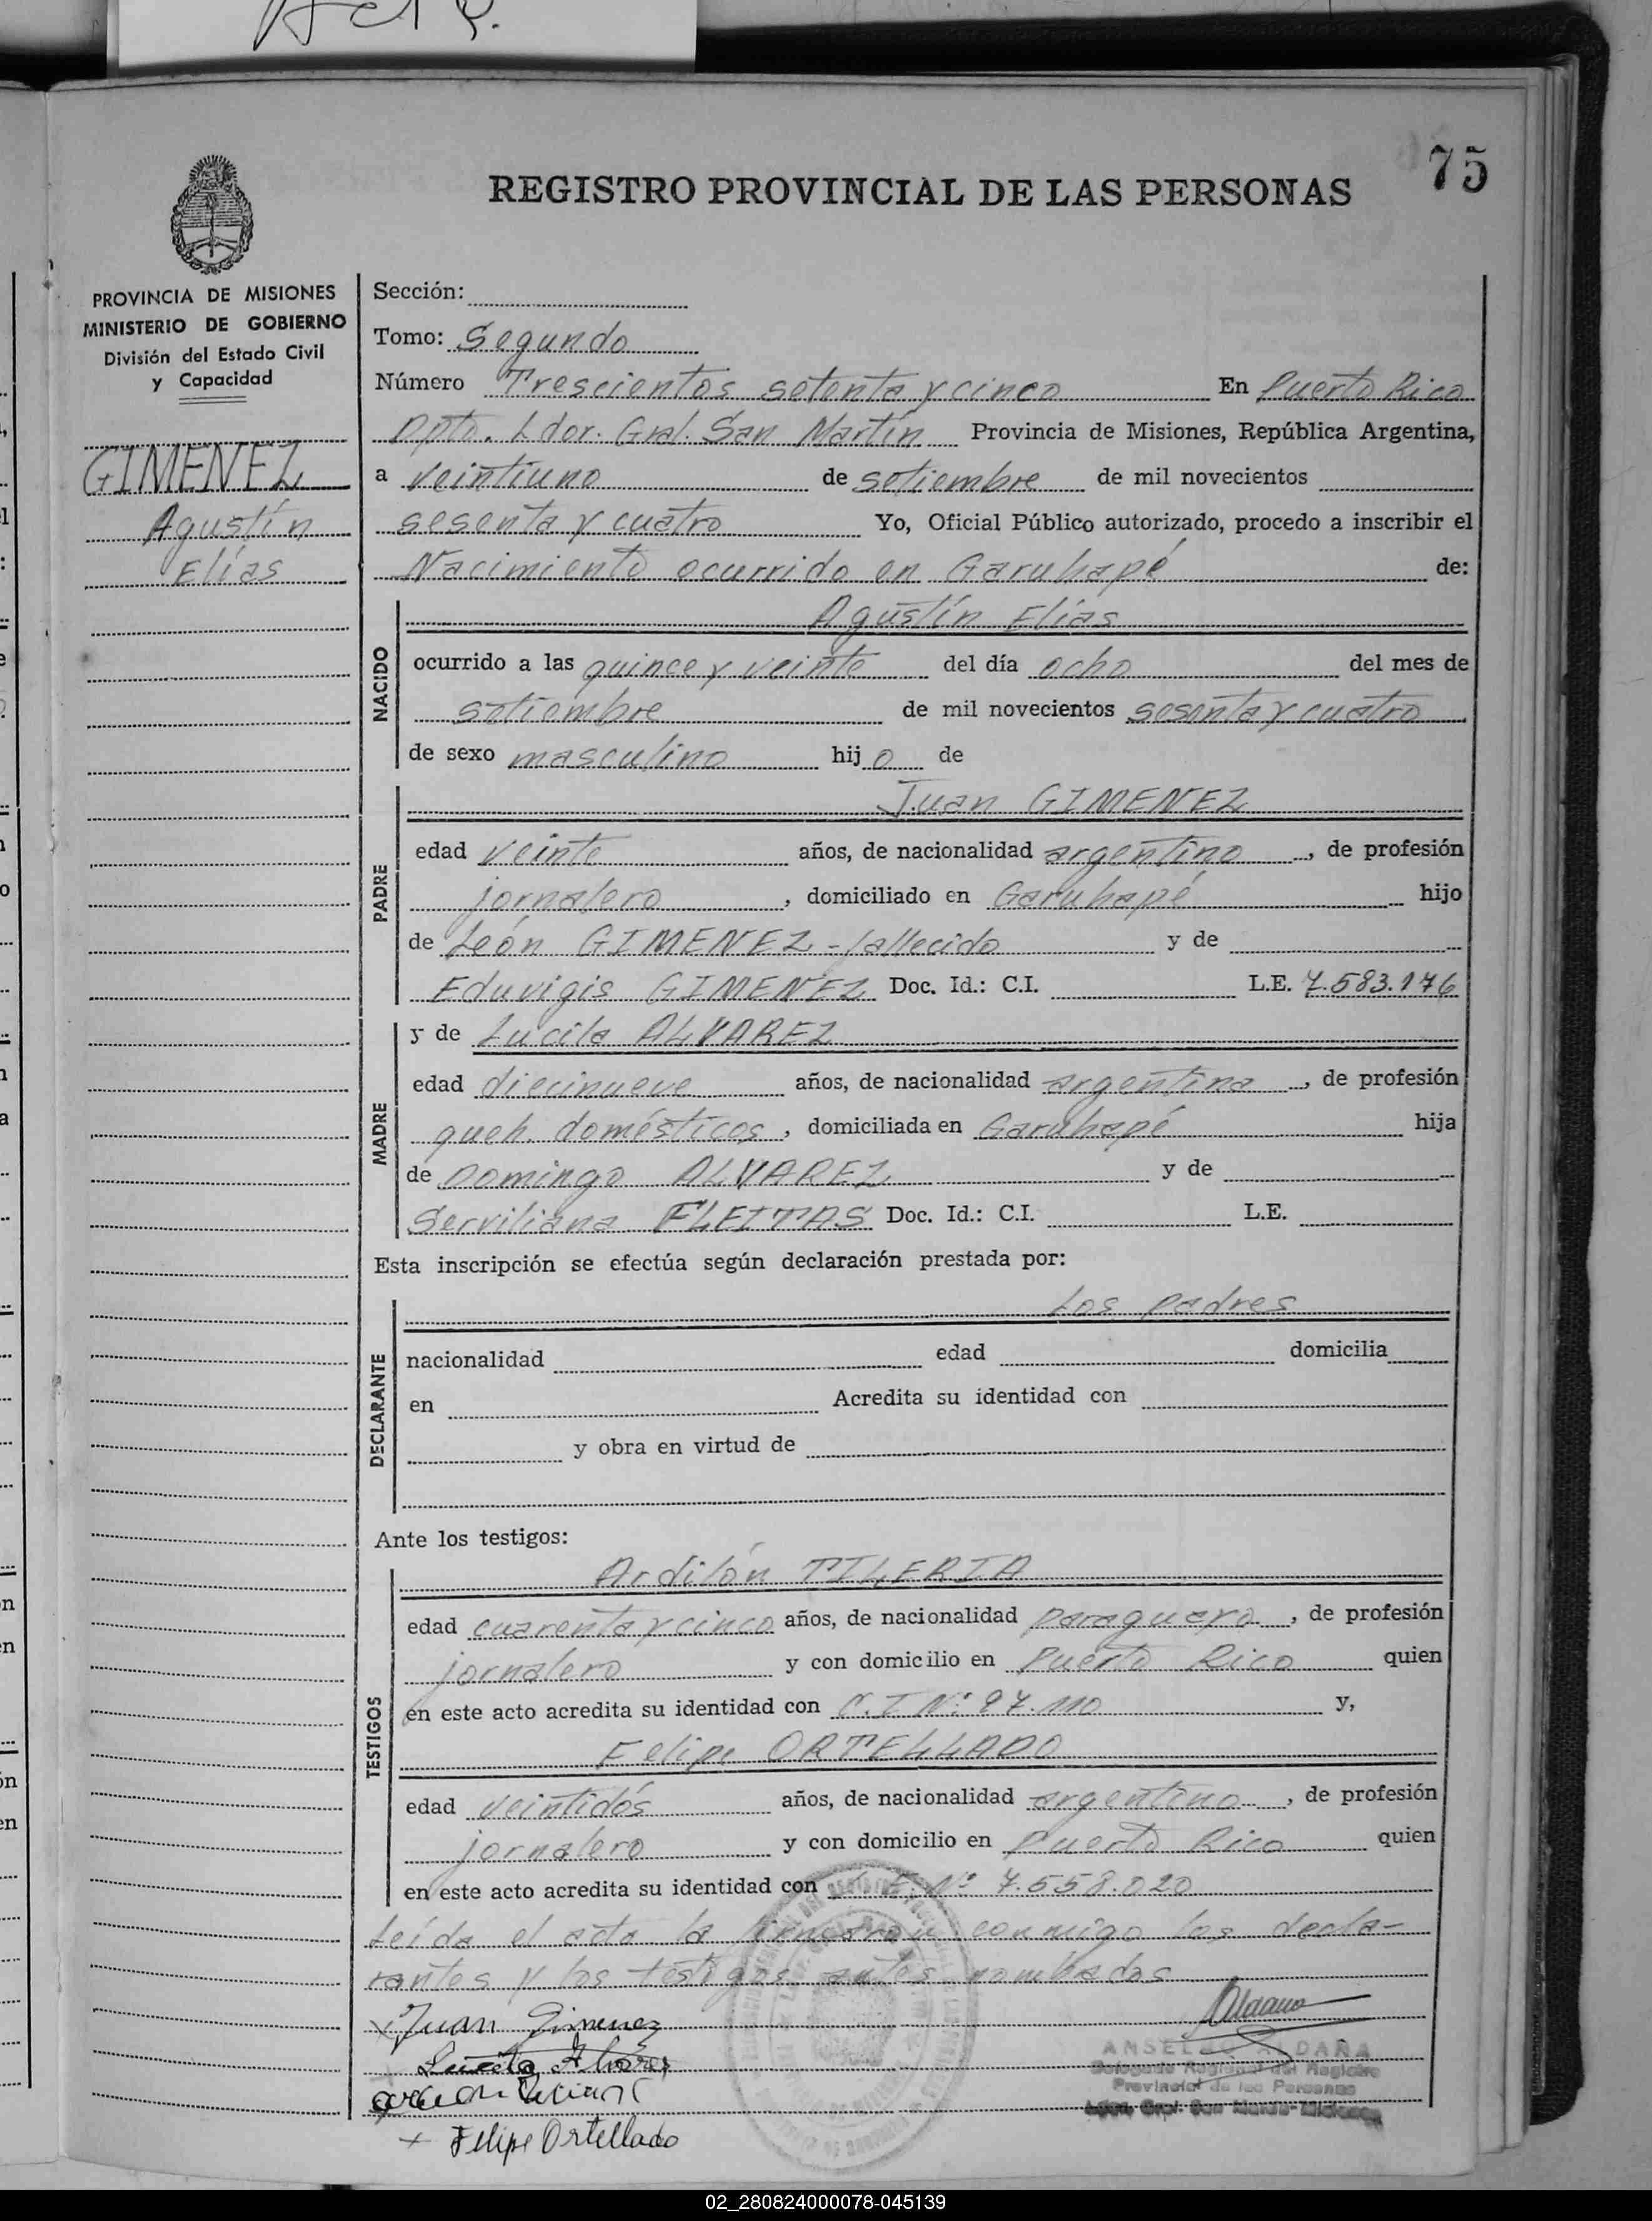 75
REGISTRO PROVINCIAL DE LAS PERSONAS
PROVINCIA DE MISIONES
MINISTERIO DE GOBIERNO
División del Estado Civil
y Capacidad
GIMENEZ
Agustín
Elías
Sección:
Tomo: Segundo
Número Trescientos setenta y cinco En Puerto Rico
Dpto. Ldor. Gral. San Martín Provincia de Misiones, República Argentina,
a veintiuno de setiembre de mil novecientos
sesenta y cuatro Yo, Oficial Público autorizado, procedo a inscribir el
Nacimiento ocurrido en Garuhapé de:
NACIDO
Agustín Elías
ocurrido a las quince y veinte del día ocho del mes de
setiembre de mil novecientos sesenta y cuatro
de sexo masculino hijo de
PADRE
Juan GIMENEZ
edad veinte años, de nacionalidad argentino, de profesión
jornalero, domiciliado en Garuhapé hijo
de León GIMENEZ - fallecido y de
Eduvigis GIMENEZ Doc. Id.: C.I. L.E. 7.583.176
MADRE
y de Lucila ALVAREZ
edad diecinueve años, de nacionalidad argentina, de profesión
queh. domésticos, domiciliada en Garuhapé hija
de Domingo ALVAREZ y de
Serviliana FLEITAS Doc. Id.: C.I. L.E.
Esta inscripción se efectúa según declaración prestada por:
DECLARANTE
Los padres
nacionalidad edad domicilia
en Acredita su identidad con
y obra en virtud de
Ante los testigos:
TESTIGOS
Ardilón TILERIA
edad cuarenta y cinco años, de nacionalidad paraguayo, de profesión
jornalero y con domicilio en Puerto Rico quien
en este acto acredita su identidad con C.I Nº 97.110 y,
Felipe ORTELLADO
edad veintidós años, de nacionalidad argentino, de profesión
jornalero y con domicilio en Puerto Rico quien
en este acto acredita su identidad con L.E. Nº 7.558.020
Leída el acta la firmaron conmigo los decla-
rantes y los testigos antes nombados
Juan Gimenez
Lucila Alvarez
Felipe Ortellado
Delegado Regional del Registro
Provincial de las Personas
02_280824000078-045139